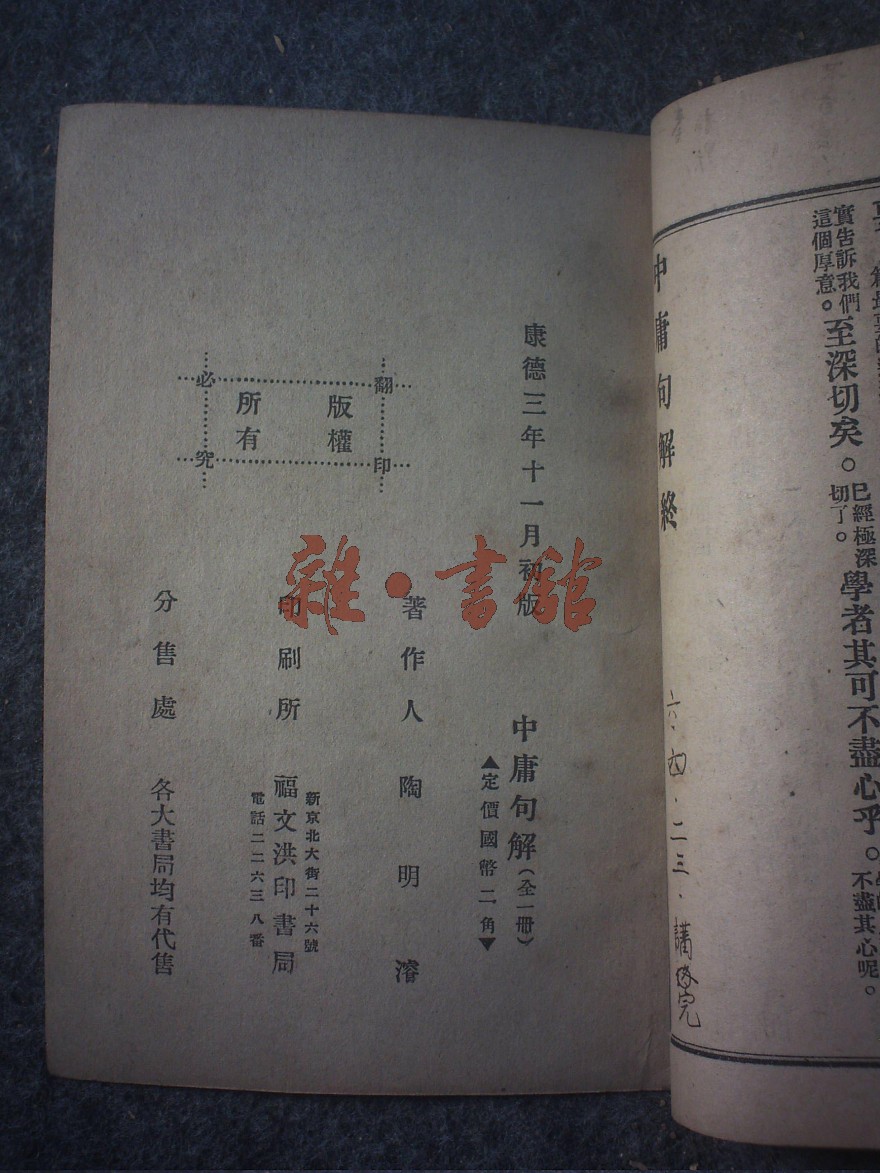 實告訴我們
這個厚意。
至深切矣。
已經極深
切了。
學者其可不盡心乎。
不盡其心呢。
中庸句解終
六.四.二三.講
完
康德三年十一月初版
中庸句解(全一冊)
▲定價國幣二角▼
著作人 陶明濬
翻印
必究
版權
所有
新京北大街二十六號
印刷所 福文洪印書局
電話二二六三八番
分售處 各大書局均有代售
雜·書館